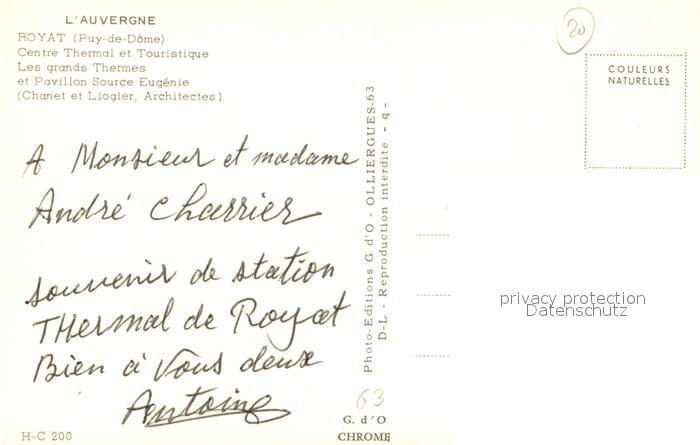 L'AUVERGNE
ROYAT (Puy-de-Dôme)
Centre Thermal et Touristique
Les grands Thermes
et Pavillon Source Eugénie
(Chanet et Liogier, Architectes)
20
COULEURS
NATURELLES
A Monsieur et madame
André Charrier
souvenir de station
THermal de Royat
Bien à Vous deux
Antoine
Photo-Editions G d'O - OLLIERGUES-63
D-L - Reproduction interdite - q -
privacy protection
Datenschutz
63
G. d'O
CHROME
H-C 200